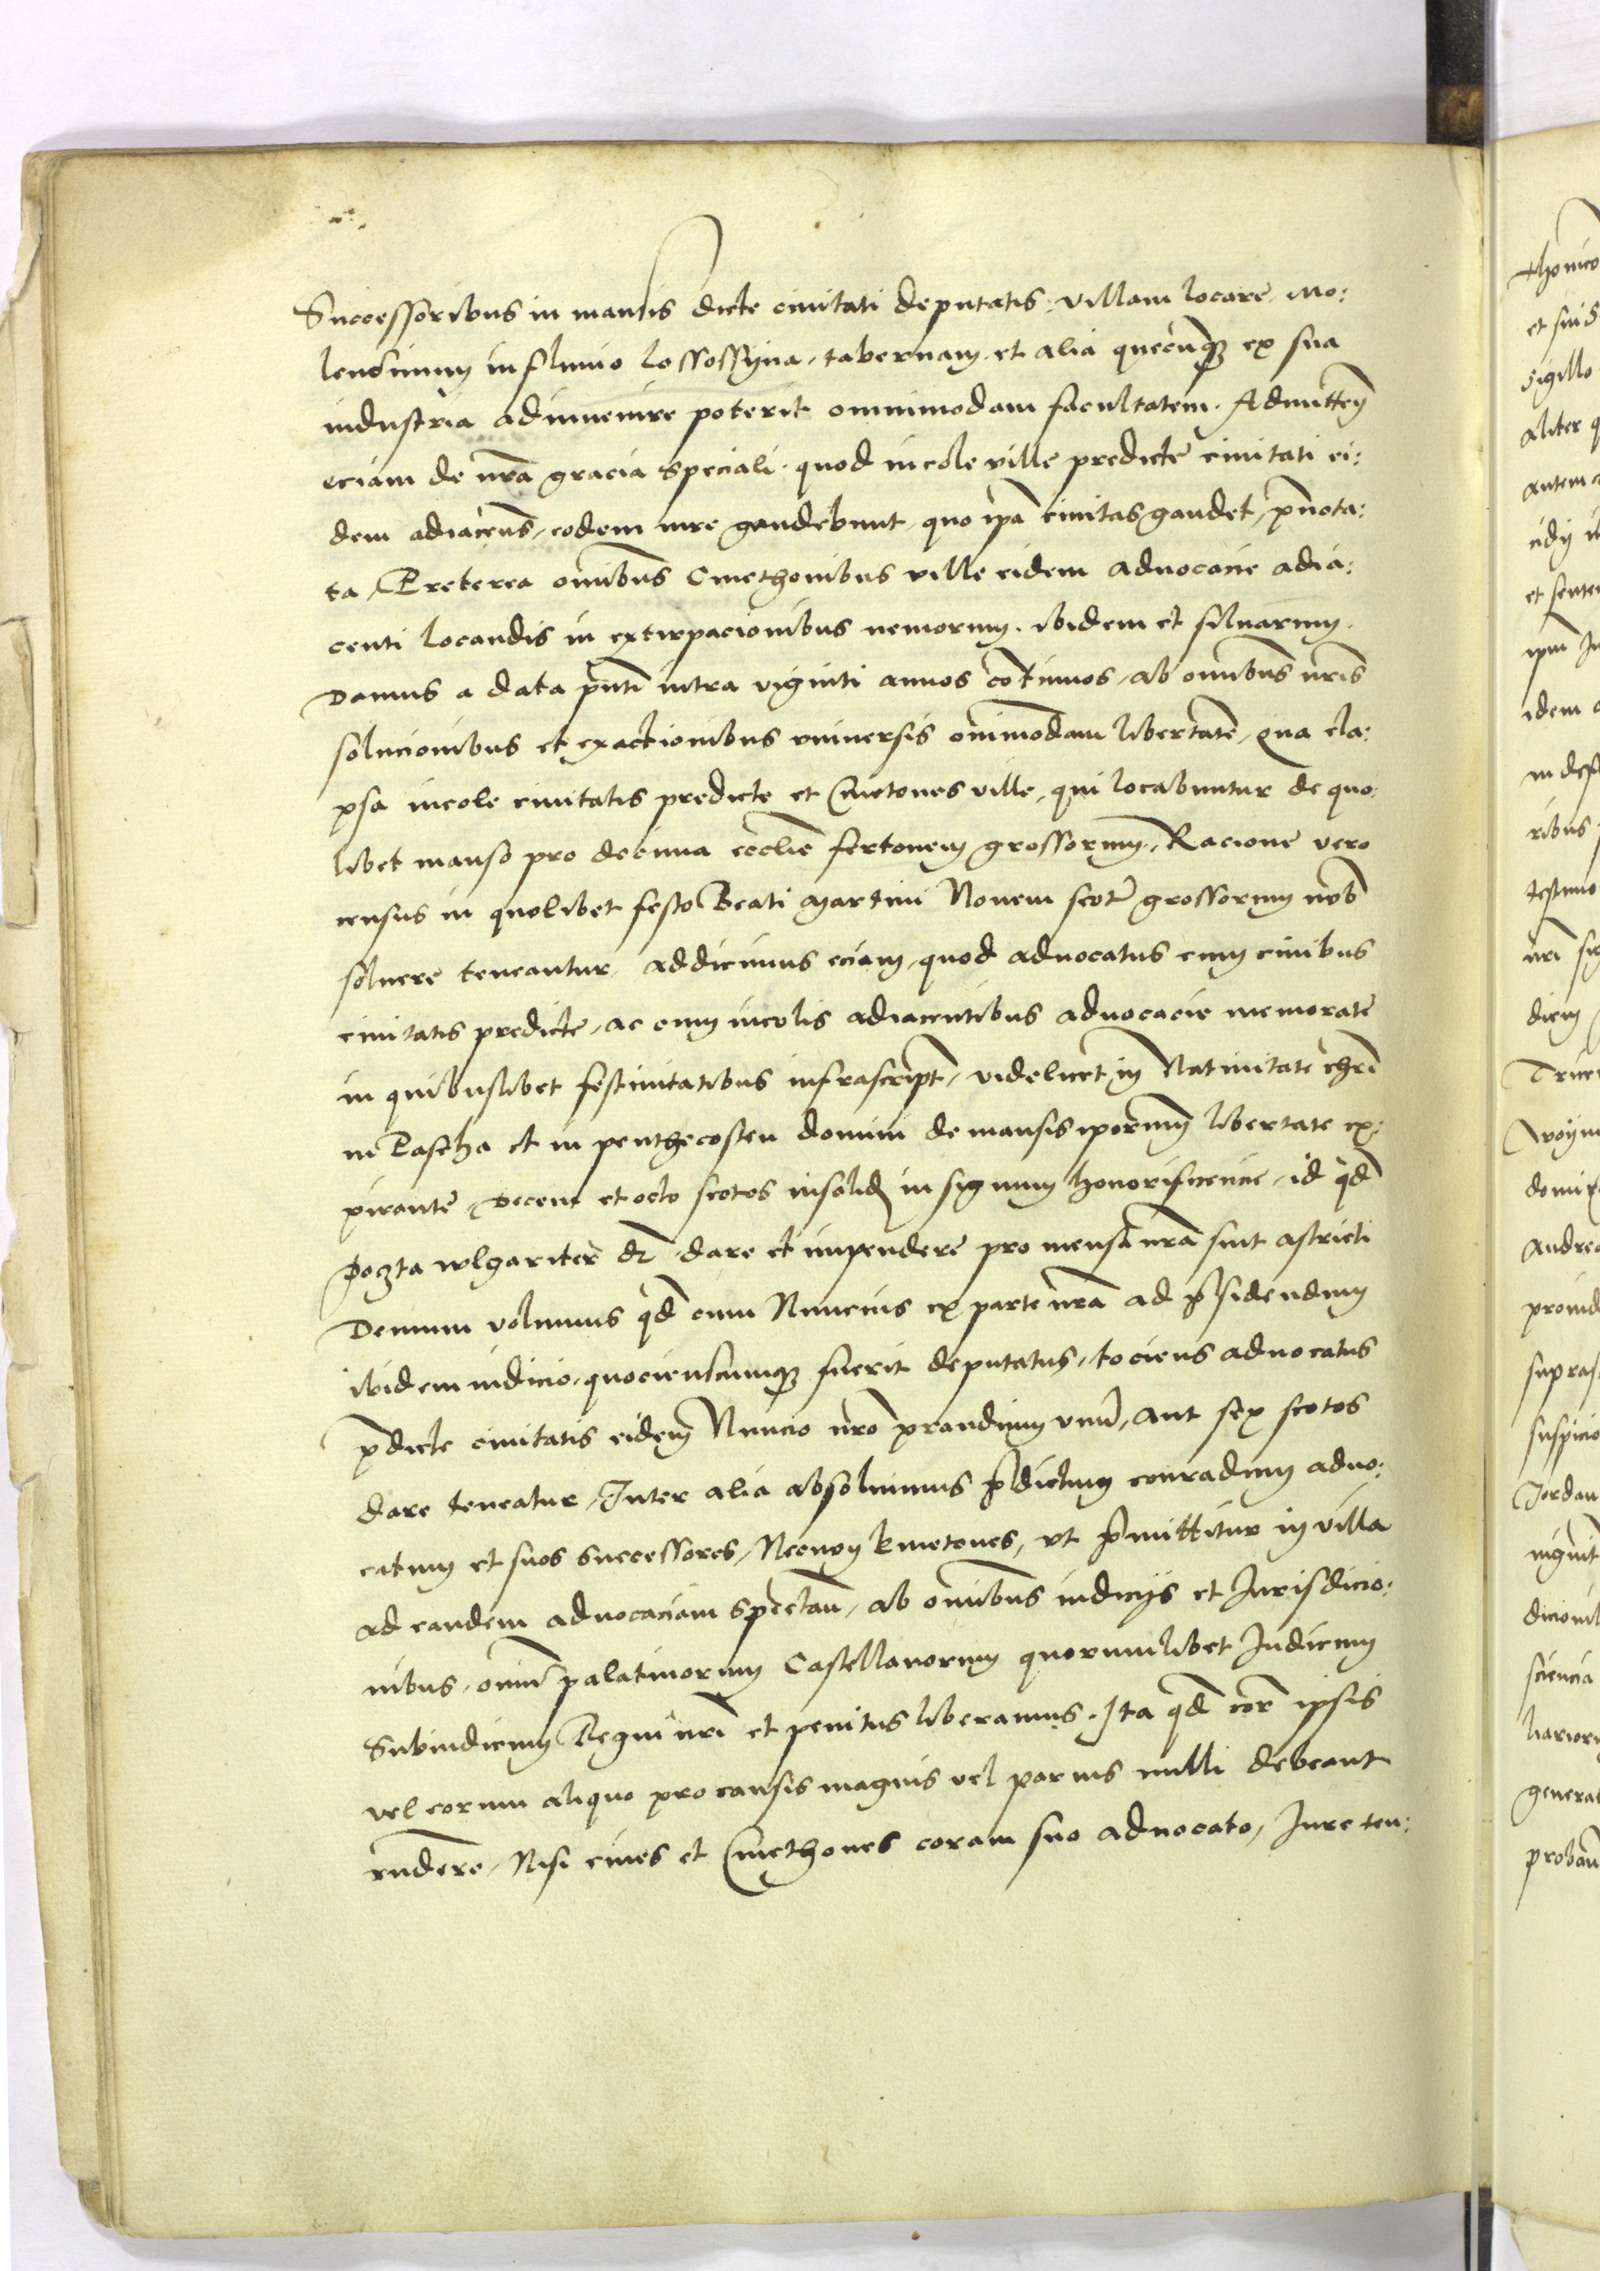 Successoribus in mansis dicte civitati deputatis. villam locare. Mo:
lendinum in fluvio Lossossyna, tabernam, et alia quecūqȝ ex sua
industria adinvenire poterit omnimodam facultatem. Admitteñ
eciam de nr̄a gracia speciali. quod incole ville predicte civitati ei:
dem adiaceñs, eodem iure gaudebunt, quo ip̄a civitas gaudet, p̄nota:
ta, Preterea om̄ibus Cmethonibus ville eidem advocacie adia:
centi locandis in extirpacionibus nemorum. ibidem et silvarum.
Damus a data pn̄ti intra viginti annos cōtinuos, ab om̄ibus nr̄is
solucionibus et exactionibus universis om̄imodam libertatē, qua ela:
psa incole civitatis predicte et Cmetones ville, qui locabuntur de quo:
libet manso pro decima ecclie fertonem grossorum, Racione vero
census in quolibet festo Beati Martini Novem scot̄ grossorum nob̄
solvere teneantur, addicimus eciam, quod advocatus cum civibus
civitatis predicte, ac cum incolis adiacentibus advocacie memorate
in quibuslibet festivitatibus infrascript̄, videlicet in Nativitate chr̄i
in Pascha et in penthecosten domini de mansis ip̄orum libertate ex:
pirante, Decem et octo scotos insolid̄ in signum honorificencie, id qd̄
Poczta wlgariter dr̄ dare et impendere pro mensa nr̄a sint astricti
Demum volumus qd̄ cum Nuncius ex parte nr̄a ad p̄sidendum
ibidem iudicio, quociensc̄umqȝ fuerit deputatus, tociens advocatus
p̄dicte civitatis eidem Nuncio nr̄o prandium unū, aut sex scotos
dare teneatur, Inter alia absolvimus p̄dictum conradum advo:
catum et suos successores, Necnon kmetones, ut p̄mittitur in villa
ad eandem advocaciam spectañ, ab om̄ibus iudicijs et Jurisdicio:
nibus, om̄iu palatinorum Castellanorum quorumlibet Judicum
Subiudicum Regni nr̄i et penitus liberamus. Ita qd̄ cor̄ ipsis
vel eorum aliquo pro causis magnis vel parvis nulli debeant
rn̄dere, Nisi cives et Cmethones coram suo advocato, Jure teu: